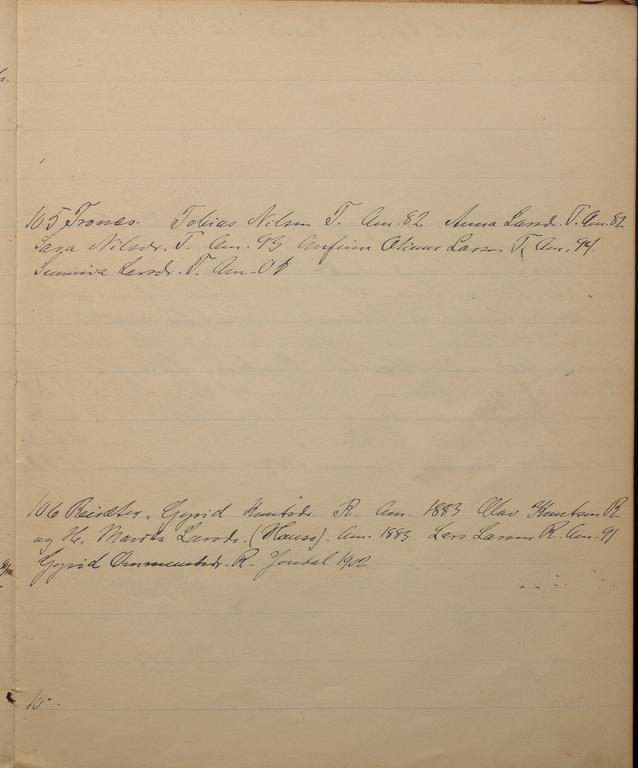 105 Tronæs. Tobias Nilsen T. Am. 82 Anna Larsdr. T. Am. 82
Nilsdr. T. Am. 93 Olinus Larsen T. Am. 94
Sunniva Larsdr. T. Am. 01
106 Reisæter. Gyrid Knutsdr. R. Am. 1883 Olav Knutson R
og H. Marita Larsdr. (Hauso). Am. 1883 Lars Larsen R. Am. 91
Gyrid R. Jondal 1902
10